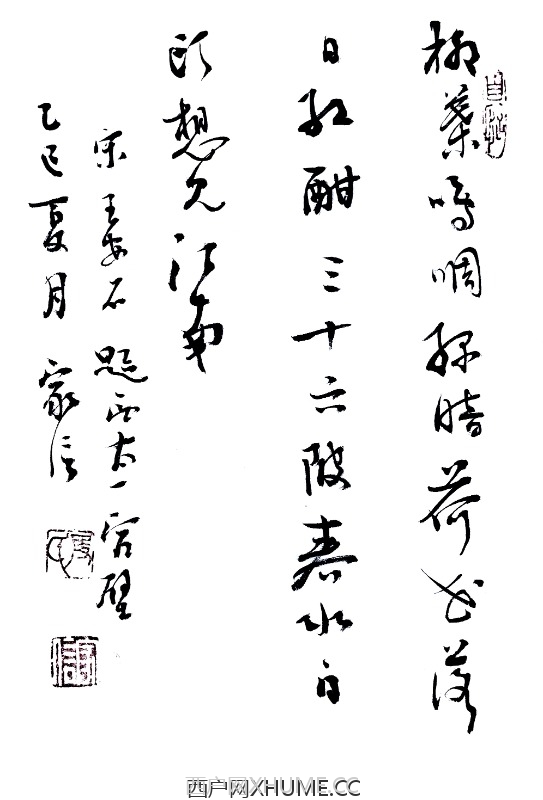 柳葉鳴蜩綠暗荷花落
日紅酣三十六陂春水白
頭想見江南
宋王安石題西太一宮壁
乙巳夏月家信
西户网XHUME.CC